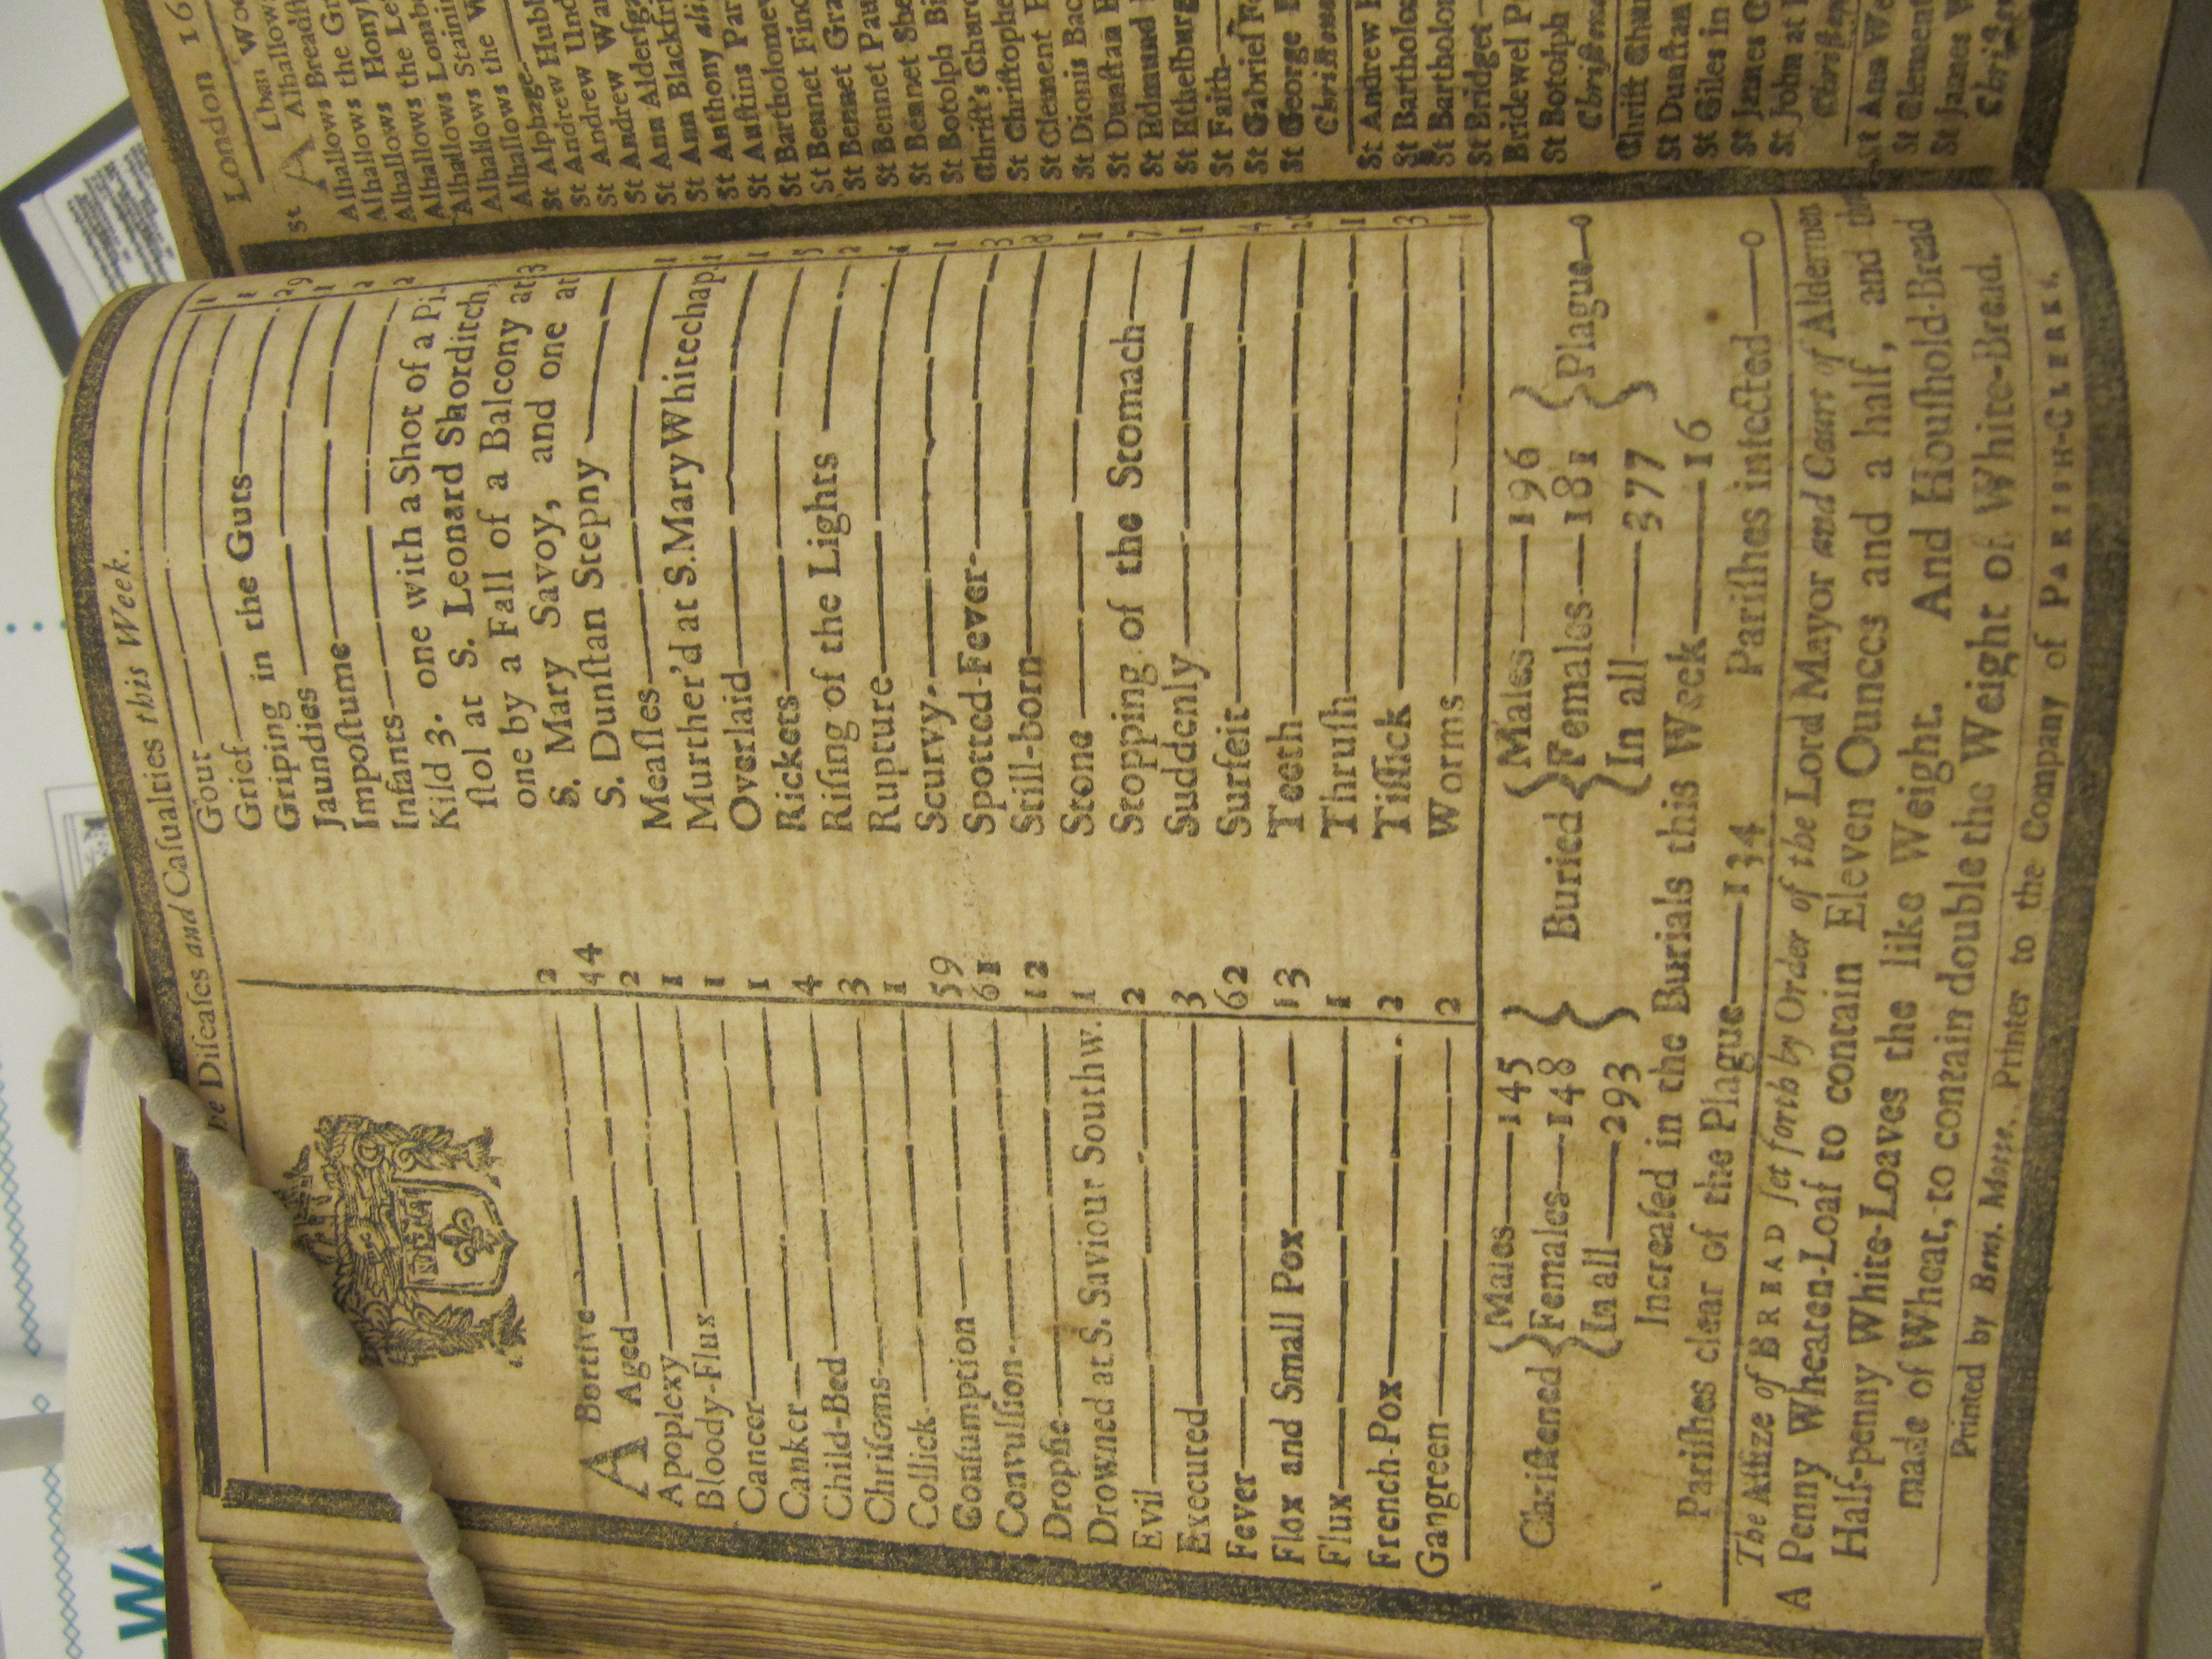 Diſeaſes and Caſualties this Week.
ABortive 2
Aged 44
Apoplexy 2
Bloody-Flux 1
Cancer 1
Canker 1
Child-Bed 4
Chriſoms 3
Collick 1
Conſumption 59
Convulſion 61
Dropſie 12
Drowned at S. Saviour Southw. 1
Evil 2
Executed 3
Fever 62
Flox and Small Pox 13
Flux 1
French-Pox 2
Gangreen 2
Gout 1
Grief 1
Griping in the Guts 29
Jaundies 1
Impoſtume 2
Infants 2
Kild 3. one with a Shot of a Pi-
ſtol at S. Leonard Shorditch,
one by a Fall of a Balcony at 3
S. Mary Savoy, and one at
S. Dunſtan Stepny
Meaſles 1
Murther'd at S. Mary Whitechap. 1
Overlaid 1
Rickets 5
Riſing of the Lights 2
Rupture
Scurvy 1
Spotted-Fever 3
Still-born 8
Stone 1
Stopping of the Stomach 7
Suddenly 1
Surfeit 4
Teeth
Thruſh 1
Tiſſick 3
Worms 1
Chriſtened { Males—145
Females—148
In all—293 }
Buried { Males—196
Females—181
In all—377 } Plague—0
Increaſed in the Burials this Week—16
Pariſhes clear of the Plague—134 Pariſhes infected—0
The Aſſize of BREAD ſet forth by Order of the Lord Mayor and Court of Aldermen
A Penny Wheaten-Loaf to contain Eleven Ounces and a half, and
Half-penny White-Loaves the like Weight. And Houſhold-Bread
made of Wheat, to contain double the Weight of White-Bread.
Printed by Benj. Motte, Printer to the Company of PARISH-CLERKS.
London 16
St Alban
Alhallows
Alhallows
Alhallows the
Alhallows
Alhallows the
Alhallows
Alhallows
Alhallows the
Alphage
St Alphage
St Andrew
St Andrew
St Andrew
St Ann
St Ann
St Anthony
St Auſtins
St
St Bennet
St Bennet
St Bennet
St Bennet
St Botolph
Chriſt's
St
St Clement
St Dionis
St Dunſtan
St Edmund
St
St Faith
St Gabriel
St George
St Andrew
St
St
St Bridget
Bridewel
St Botolph
Chriſt
St Dunſtan
St Giles in
St James
St John at
St Ann
St Clement
St James